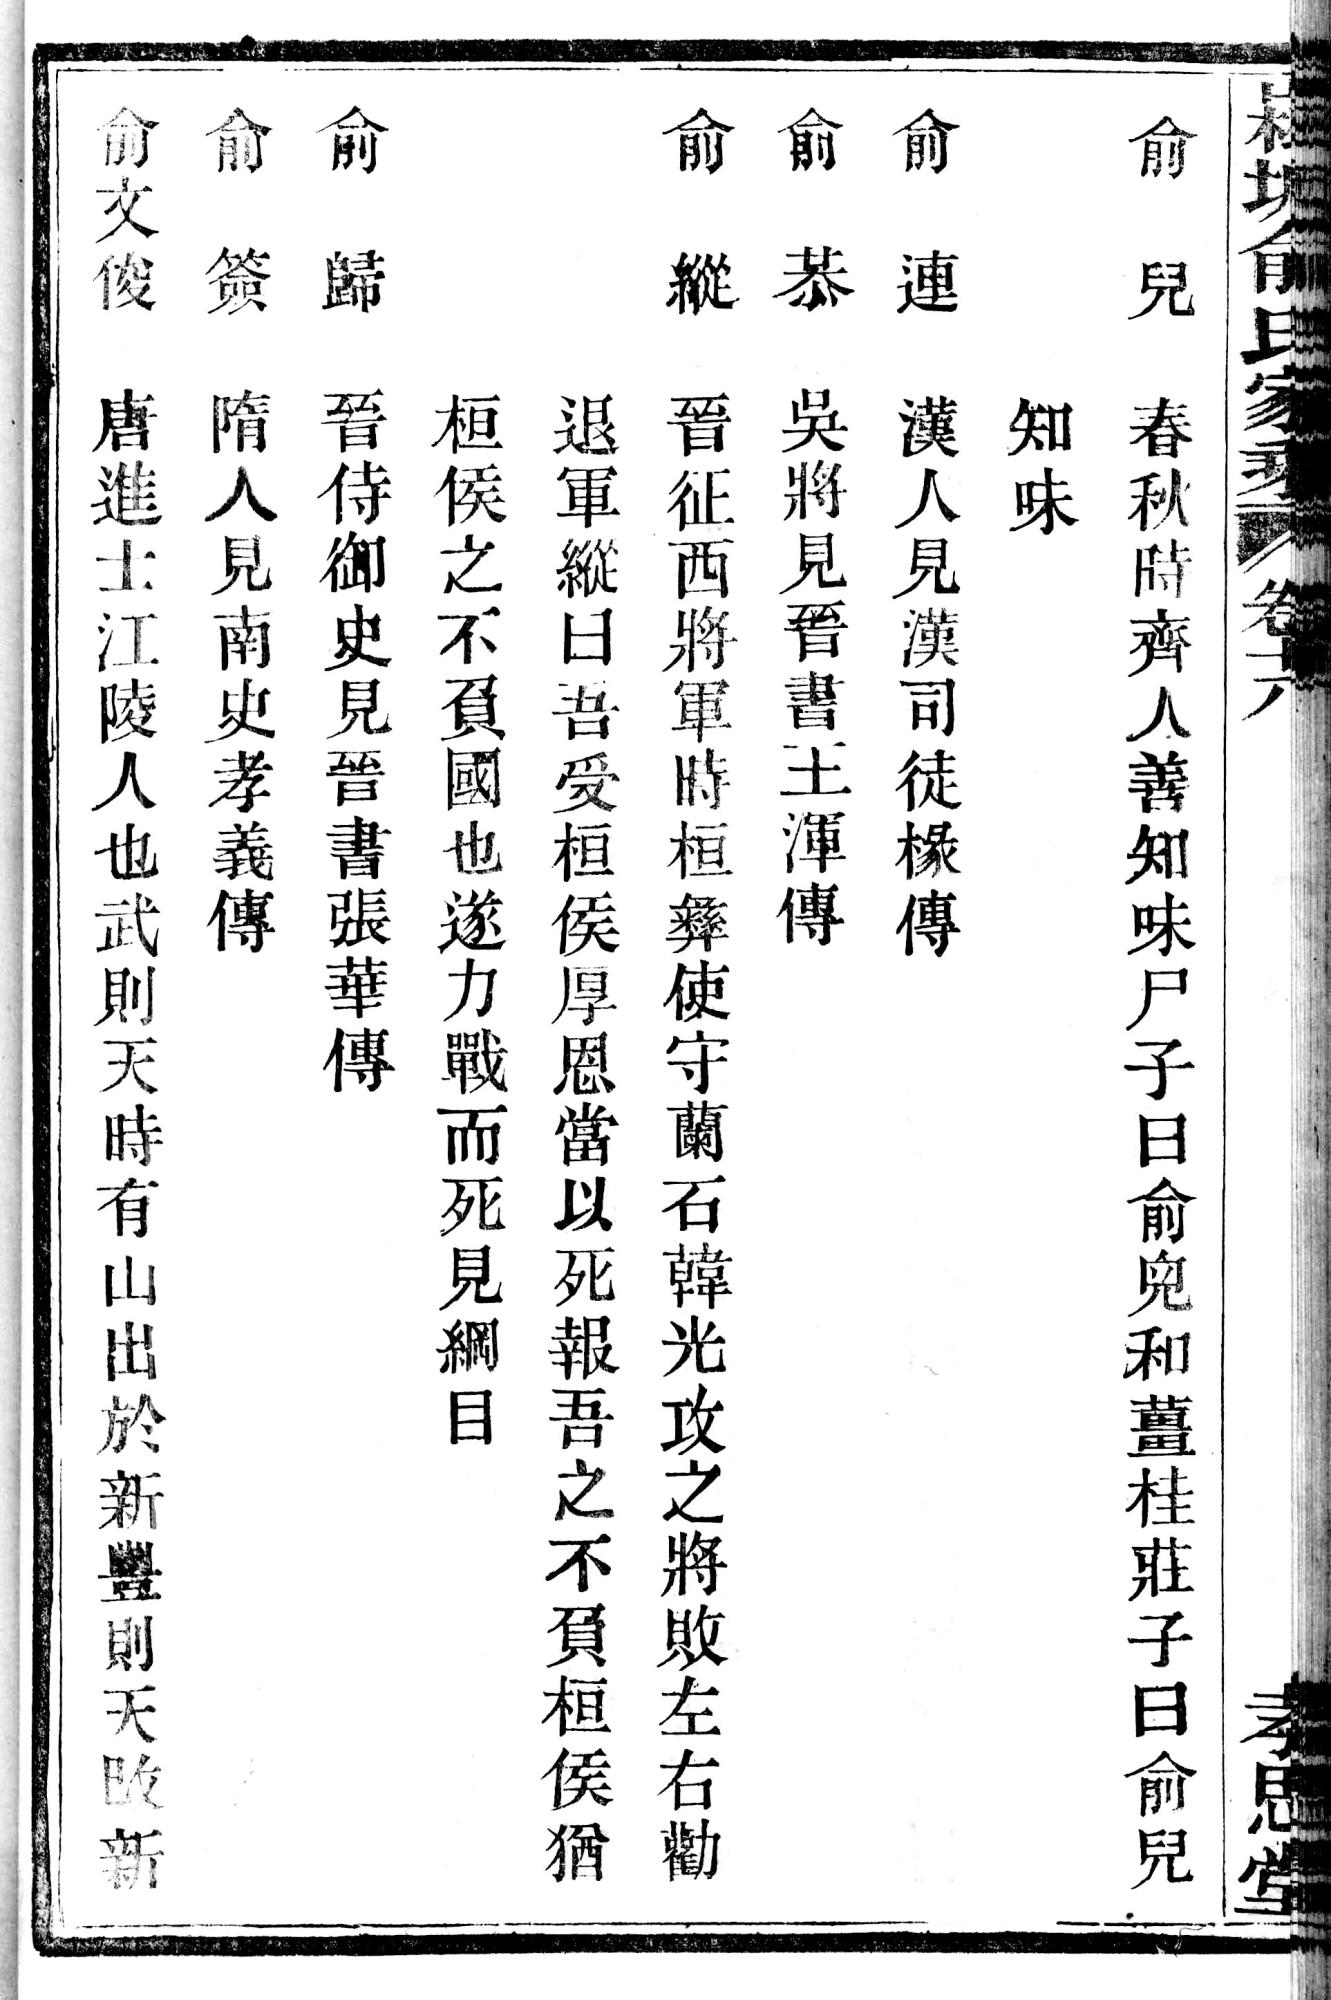 俞氏家乘 卷十六 孝思堂
俞兒 春秋時齊人善知味尸子曰俞兒和薑桂莊子曰俞兒
知味
俞連 漢人見漢司徒椽傳
俞恭 吳將見晉書王渾傳
俞縱 晉征西將軍時桓彝使守蘭石韓光攻之將敗左右勸
退軍縱曰吾受桓侯厚恩當以死報吾之不負桓侯猶
桓侯之不負國也遂力戰而死見綱目
俞歸 晉侍御史見晉書張華傳
俞簽 隋人見南史孝義傳
俞文俊 唐進士江陵人也武則天時有山出於新豐則天改新